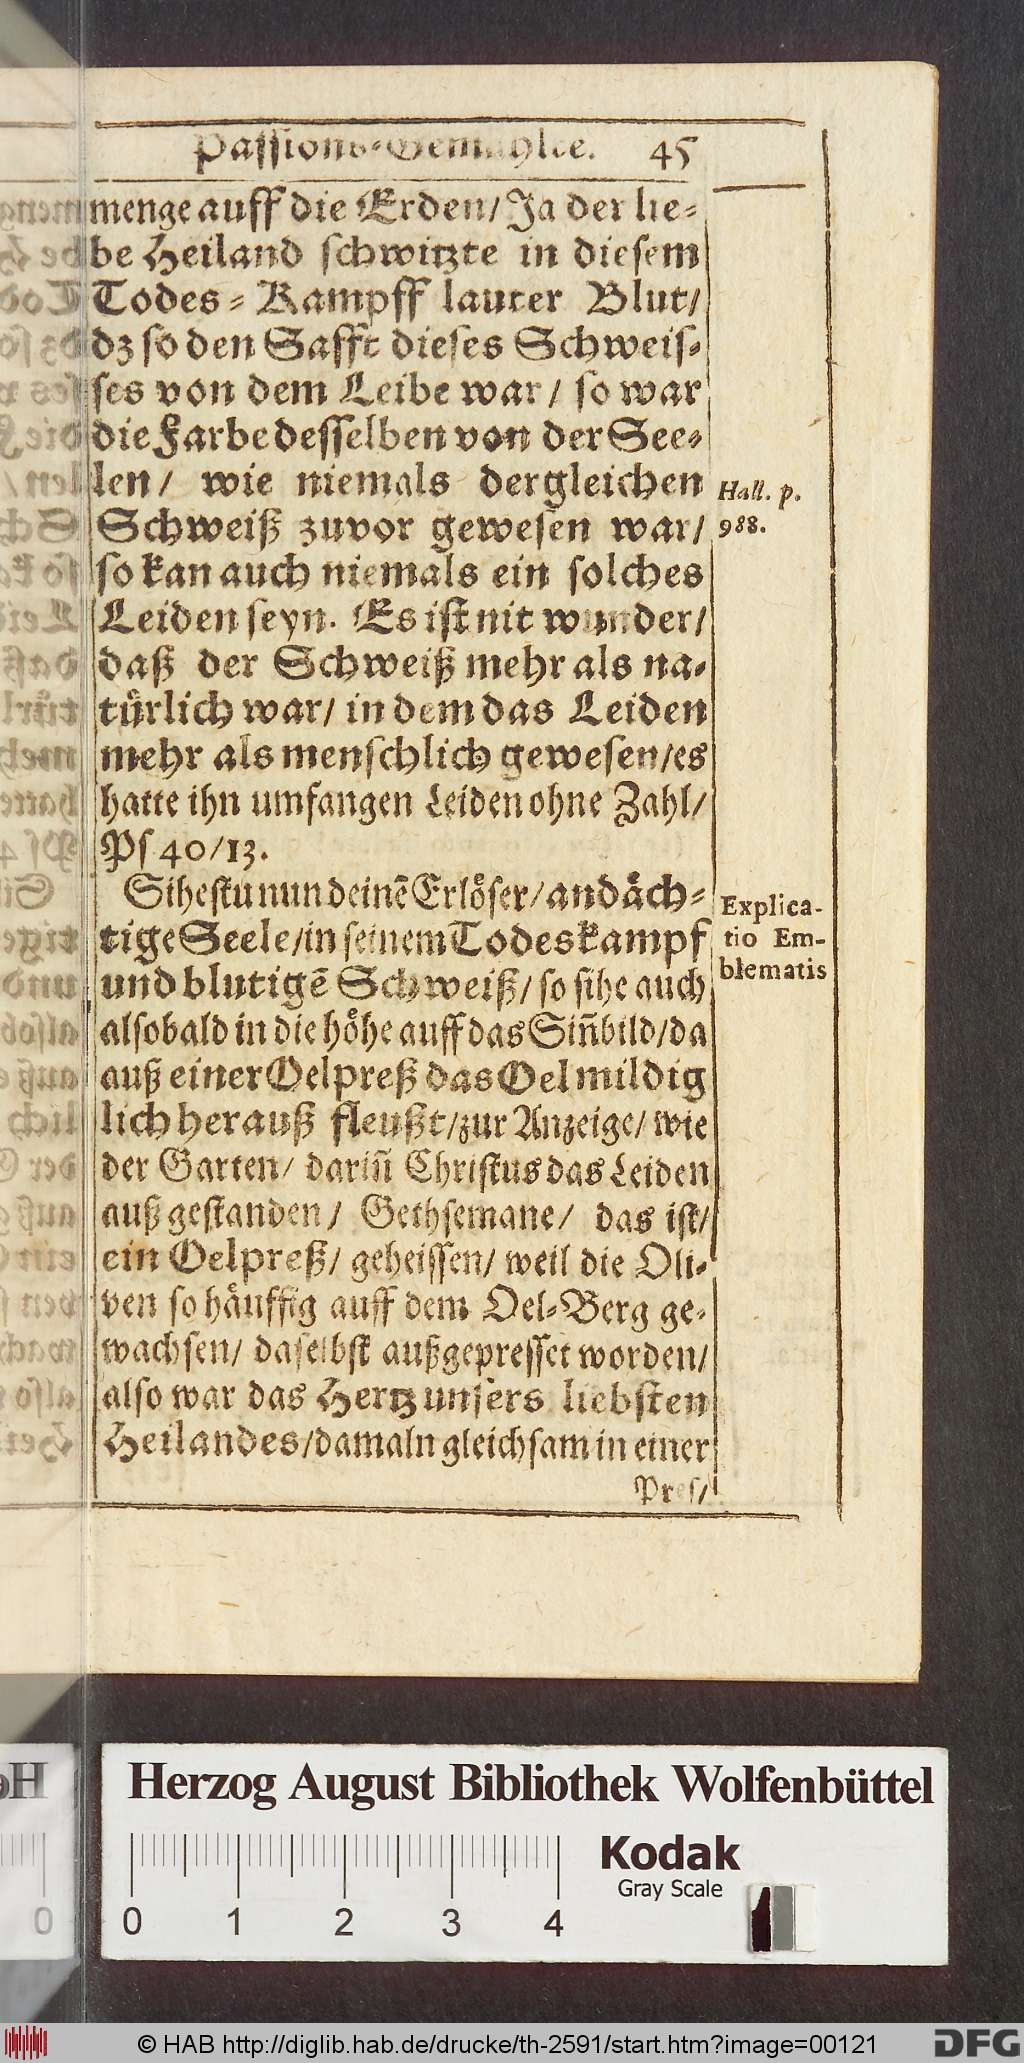 Passions-Gemählde. 45
menge auff die Erden/ Ja der lie-
be Heiland schwitzte in diesem
Todes- Kampff lauter Blut/
dz so den Safft dieses Schweis-
ses von dem Leibe war/ so war
die Farbe desselben von der See-
len/ wie niemals dergleichen
Schweiß zuvor gewesen war/
so kan auch niemals ein solches
Leiden seyn. Es ist nit wunder/
daß der Schweiß mehr als na-
türlich war/ in dem das Leiden
mehr als menschlich gewesen/es
hatte ihn umfangen Leiden ohne Zahl/
Ps 40/13.
Sihestu nun deinē Erlöser/ andäch-
tige Seele/in seinem Todeskampf
und blutigē Schweiß/ so sihe auch
alsobald in die höhe auff das Siñbild/da
auß einer Oelpreß das Oel mildig
lich herauß fleußt/zur Anzeige/ wie
der Garten/ dariñ Christus das Leiden
außgestanden/ Gethsemane/ das ist/
ein Oelpreß/ geheissen/ weil die Oli-
ven so häuffig auff dem Oel-Berg ge-
wachsen/ daselbst außgepresset worden/
also war das Hertz unsers liebsten
Heilandes/damaln gleichsam in einer
Pres/
Hall. p.
988.
Explica-
tio Em-
blematis
Herzog August Bibliothek Wolfenbüttel
Kodak
Gray Scale
0 1 2 3 4
0
© HAB http://diglib.hab.de/drucke/th-2591/start.htm?image=00121
DFG